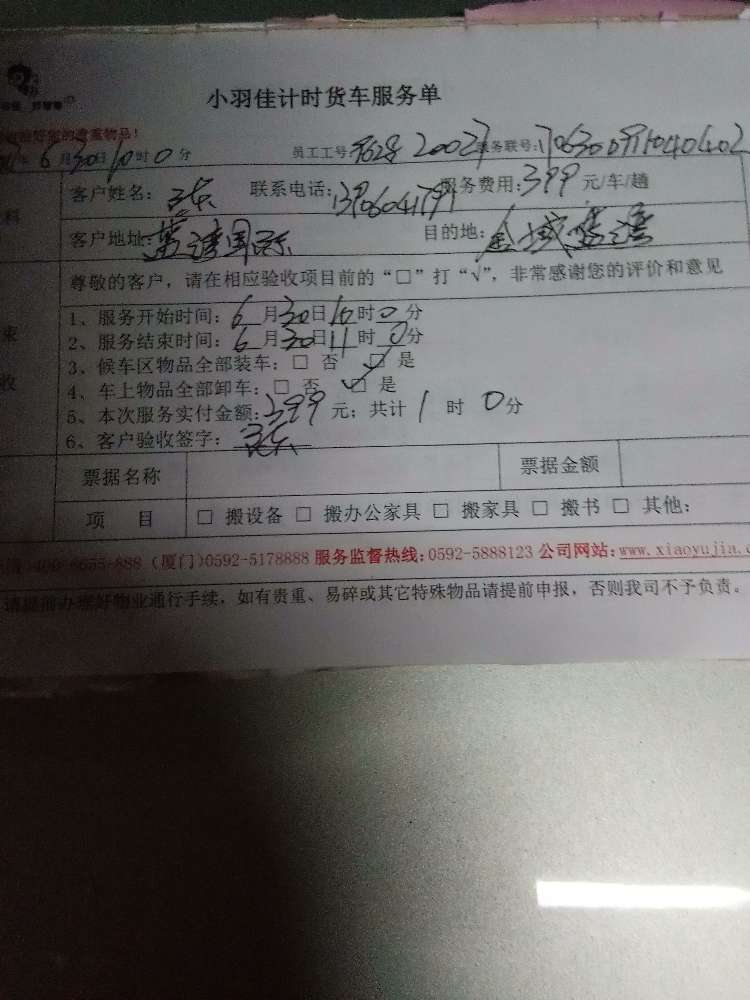 小羽佳计时货车服务单
验好您的贵重物品！
年6月30日10时0分 员工工号 20027 服务联号：
客户姓名： 联系电话： 服务费用：399元/车/趟
客户地址：蓝湾国际 目的地：金域蓝湾
尊敬的客户，请在相应验收项目前的“□”打“√”，非常感谢您的评价和意见
1、服务开始时间：6月30日10时0分
2、服务结束时间：6月30日11时0分
3、候车区物品全部装车：□ 否 □ 是
4、车上物品全部卸车：□ 否 ☑ 是
5、本次服务实付金额：399元；共计1时0分
6、客户验收签字：
票据名称 票据金额
项 目 □ 搬设备 □ 搬办公家具 □ 搬家具 □ 搬书 □ 其他：
400-8655-888（厦门）0592-5178888 服务监督热线：0592-5888123 公司网站：www.xiaoyujia.c
请提前办理好物业通行手续，如有贵重、易碎或其它特殊物品请提前申报，否则我司不予负责。